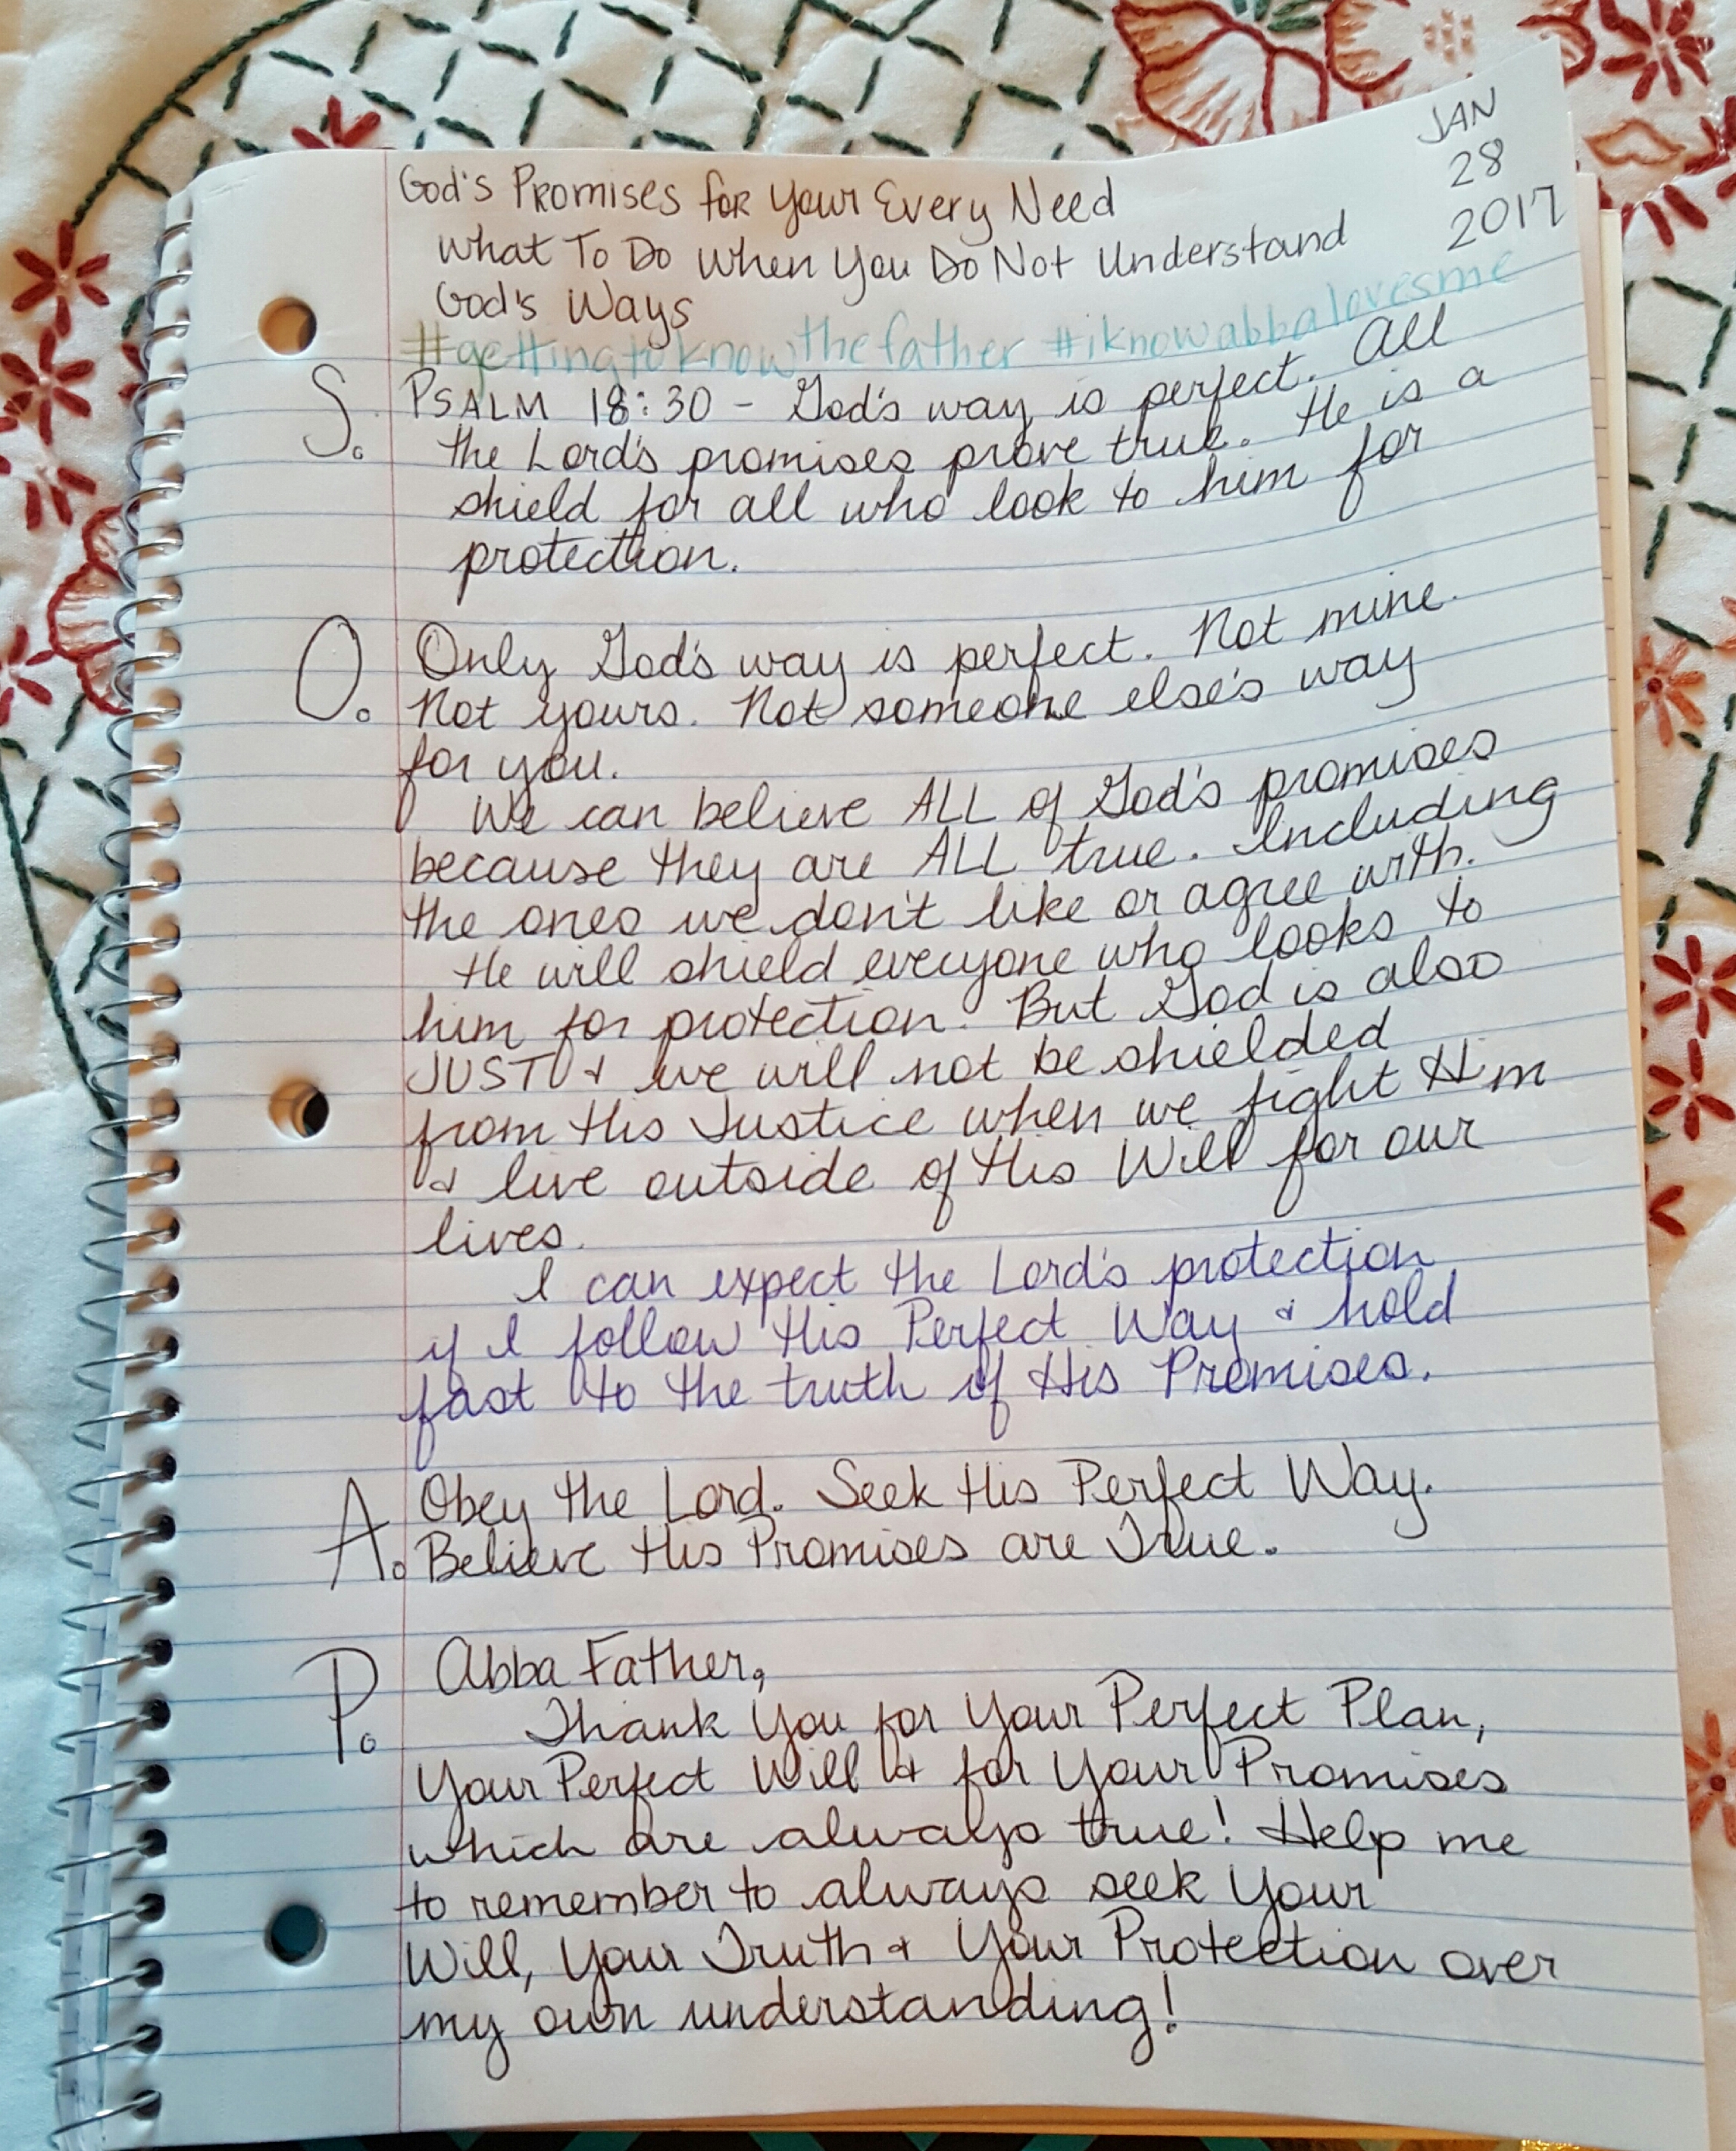 JAN
28
2017
God's Promises for Your Every Need
What To Do When You Do Not Understand
God's Ways
#gettingtoknowthefather #iknowabbalovesme
S. PSALM 18:30 - God's way is perfect. All
the Lord's promises prove true. He is a
shield for all who look to him for
protection.
O. Only God's way is perfect. Not mine.
Not yours. Not someone else's way
for you.
We can believe ALL of God's promises
because they are ALL true. Including
the ones we don't like or agree with.
He will shield everyone who looks to
him for protection. But God is also
JUST & we will not be shielded
from His Justice when we fight Him
& live outside of His Will for our
lives.
I can expect the Lord's protection
if I follow His Perfect Way & hold
fast to the truth of His Promises.
A. Obey the Lord. Seek His Perfect Way.
Believe His Promises are True.
P. Abba Father,
Thank You for Your Perfect Plan,
Your Perfect Will & for Your Promises
which are always true! Help me
to remember to always seek Your
Will, Your Truth & Your Protection over
my own understanding!